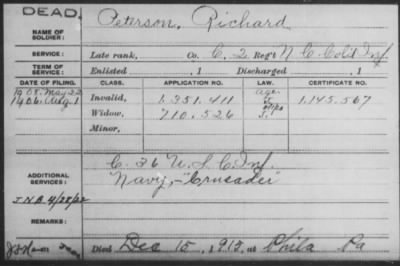 DEAD.
NAME OF SOLDIER: Peterson, Richard
SERVICE: Late rank, Co. C, 2 Reg't N C Col'd Inf.
TERM OF SERVICE: Enlisted , 1 Discharged , 1
DATE OF FILING. CLASS. APPLICATION NO. LAW. CERTIFICATE NO.
1908. May 22 Invalid, 1.351.411 age 1.145.567
1906. Aug. 1 Widow, 710.526
Minor,
ADDITIONAL SERVICES: C. 36 U.S.C. Inf.
Navy, - "Crusader"
J.N.B. 4/28/22
REMARKS:
Died Dec 15, 1913, at Phila Pa